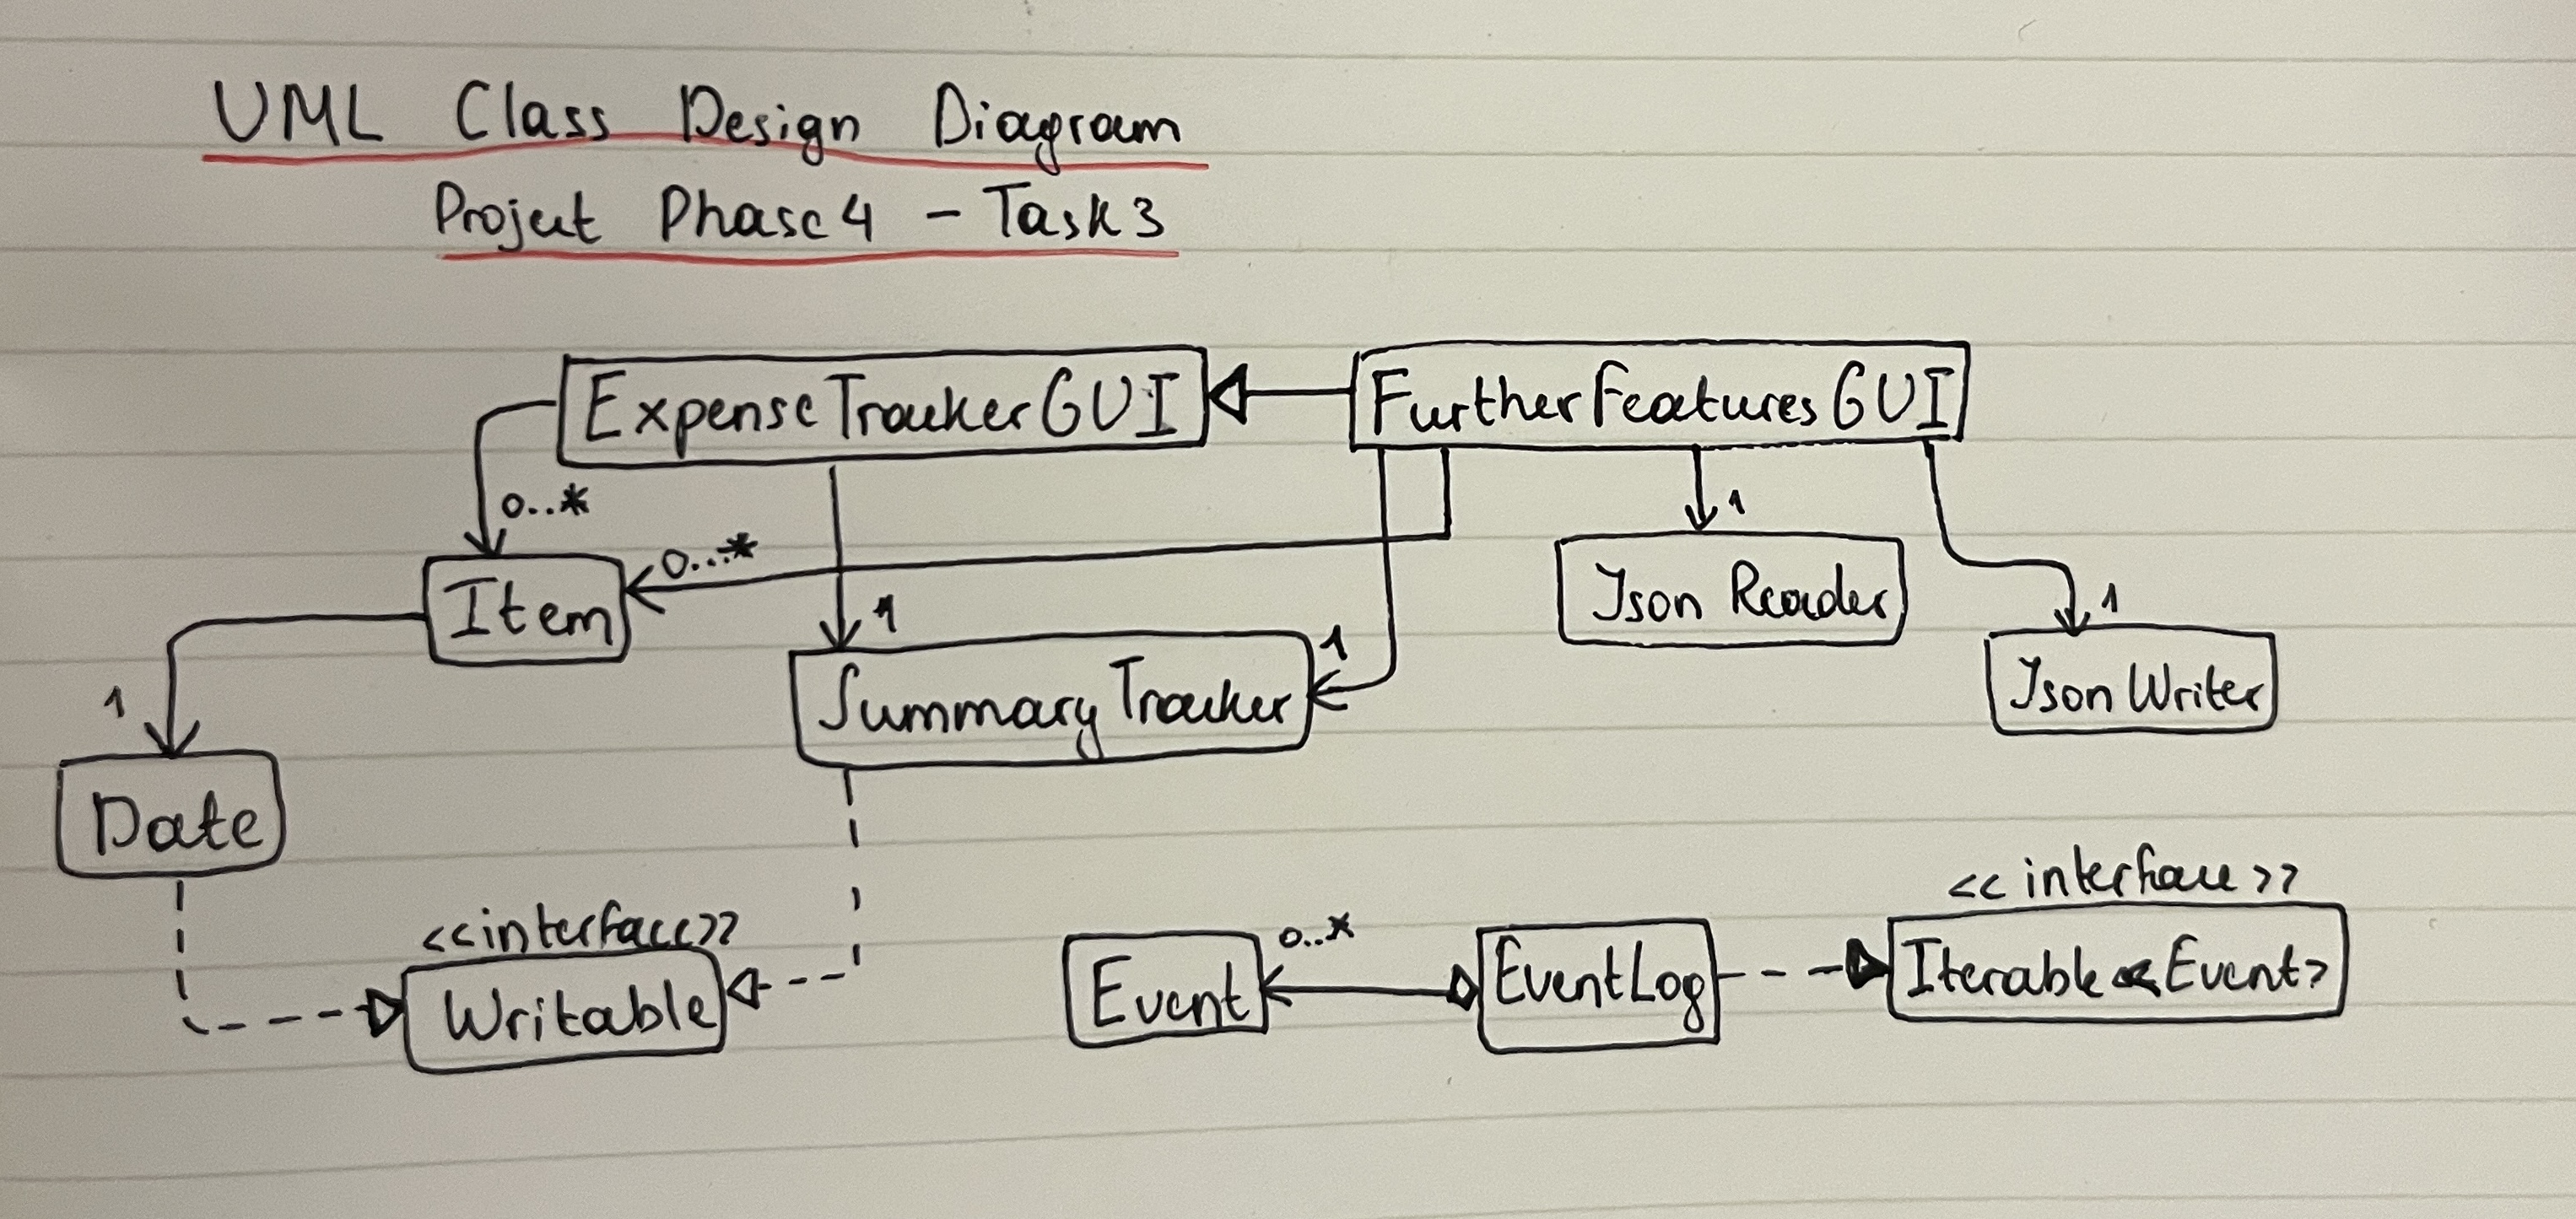 UML Class Design Diagram
Project Phase 4 - Task 3
ExpenseTrackerGUI
FurtherFeaturesGUI
0..*
0...*
1
Item
1
1
Json Reader
1
1
SummaryTracker
JsonWriter
Date
<<interface>>
<<interface>>
Writable
0..*
Event
EventLog
Iterable<Event>